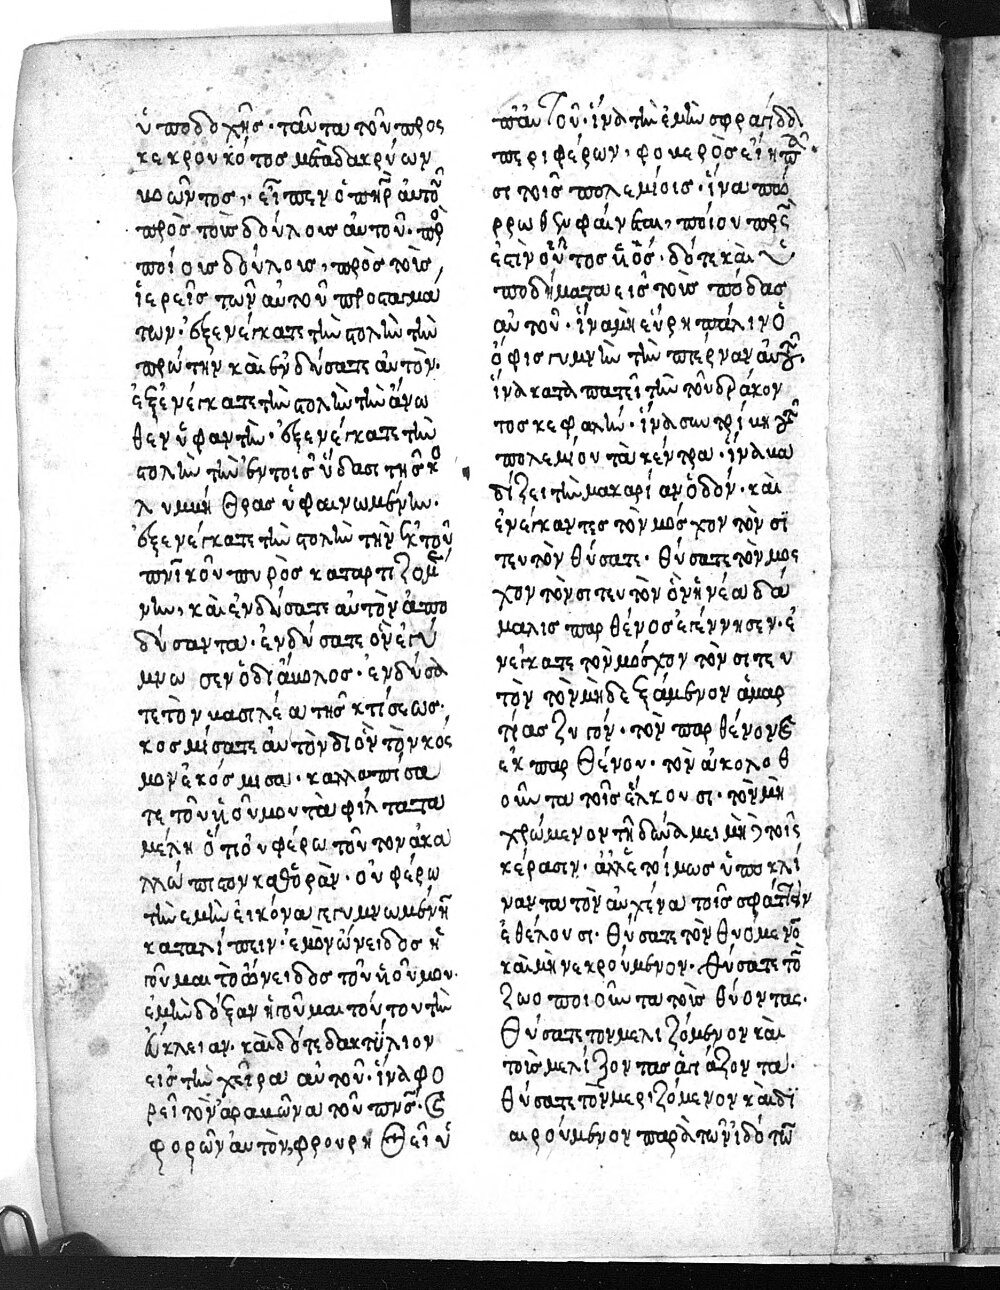 ὑποδοχῆς· ταῦτα τοῦ πρὸς
κεκρουκότος μετὰ δακρύων
βοῶντος, εἶπεν ὁ πηρ αὐτοῦ
πρὸς τοὺς δούλους αὐτοῦ· πρὸ
ποίοις δούλοις, πρὸς τοὺς
ἱερεῖς τῶν αὐτοῦ προσταγμά
των· ἐξενέγκατε τὴν στολὴν τὴν
πρώτην καὶ ἐνδύσατε αὐτὸν·
ἐξενέγκατε τὴν στολὴν τὴν ἄνω
θεν ὑφαντὴν· ἐξενέγκατε τὴν
στολὴν τὴν ἐν τοῖς ὕδασι τῆς κο
λυμβήθρας ὑφαινωμένην·
ἐξενέγκατε τὴν στολὴν τὴν ἐκ τοῦ
πνικοῦ πυρὸς καταρτιζομέ
νην, καὶ ἐνδύσατε αὐτὸν ἀπο
δύσαντα· ἐνδύσατε ὃν ἐγύ
μνωσεν ὁ διάβολος· ἐνδύσα
τε τὸν βασιλέα τῆς κτίσεως·
κοσμίσατε αὐτὸν δι ὃν τὸν κόσ
μον ἐκόσμισα· καλλωπίσα
τε τοῦ υἱοῦ μου τὰ φίλτατα
μέλη ὅτι οὐ φέρω τοῦτον ἀκα
λλώπιστον καθορᾶν· οὐ φέρω
τὴν ἐμὴν εἰκόνα γεγυμνωμένην
καταλίπειν· ἐμὸν ὤνειδος ἡ
γοῦμαι τὸ ὤνειδος τοῦ υἱοῦ μου·
ἐμὴν δόξαν ἡγοῦμαι τούτου τὴν
εὔκλειαν· καὶ δότε δακτύλιον
εἰς τὴν χεῖρα αὐτοῦ· ἵνα φο
ρεῖ τὸν ἀραβῶνα τοῦ πνς· καὶ
φορῶν αὐτὸν, φρουρηθεῖ ὑ
πὰν τοῦ· ἵνα τὴν ἐμὴν σφραγίδα
περιφέρων, φοβερὸς εἴη πᾶ
σι τοῖς πολεμίοις· ἵνα πό
ρρωθεν φαίνεται, ποίου πρς
ἐστὶν οὗτος υἱός· δότε καὶ ὑ
ποδήματα εἰς τοὺς πόδας
αὐτοῦ· ἵνα μὴ εὕρη πάλιν ὁ
ὄφις γυμνὴν τὴν πτέρναν αὐτοῦ·
ἵνα καταπατεῖ τὴν τοῦ δράκον
τος κεφαλήν· ἵνα συντρίβη τοῦ
πολεμίου τὰ κέντρα· ἵνα βα
δίζει τὴν μακαρίαν ὁδόν· καὶ
ἐνέγκαντες τὸν μόσχον τὸν σι
τευτὸν θύσατε· θύσατε τὸν μόσ
χον τὸν σιτευτὸν ὃν ἡ νέα δά
μαλις παρθένος ἐγέννησεν· ἐ
νέγκατε τὸν μόσχον τὸν σιτευ
τὸν τὸν μὴ δεξάμενον ἁμαρ
τίας ζυγόν· τὸν παρθένον καὶ
ἐκ παρθένου· τὸν ἀκολοθ
οῦντα τοῖς ἕλκουσι· τὸν μὴ
χρώμενον τῆ δυνάμει μὴ τοῖς
κέρασιν· ἀλλ ἑτοίμως ὑποκλί
ναντα τὸν αὐχένα τοῖς σφάττειν
ἐθέλουσι· θύσατε τὸν θυόμενον
καὶ μὴ νεκρούμενον· θύσατε τὸ
ζωοποιοῦντα τοὺς θύοντας·
θύσατε τὸν μελιζόμενον καὶ
τοὺς μελίζοντας ἁγιάζοντα·
θύσατε τὸν μεριζόμενον καὶ δι
αιρούμενον παρὰ τῶν ἰδότων